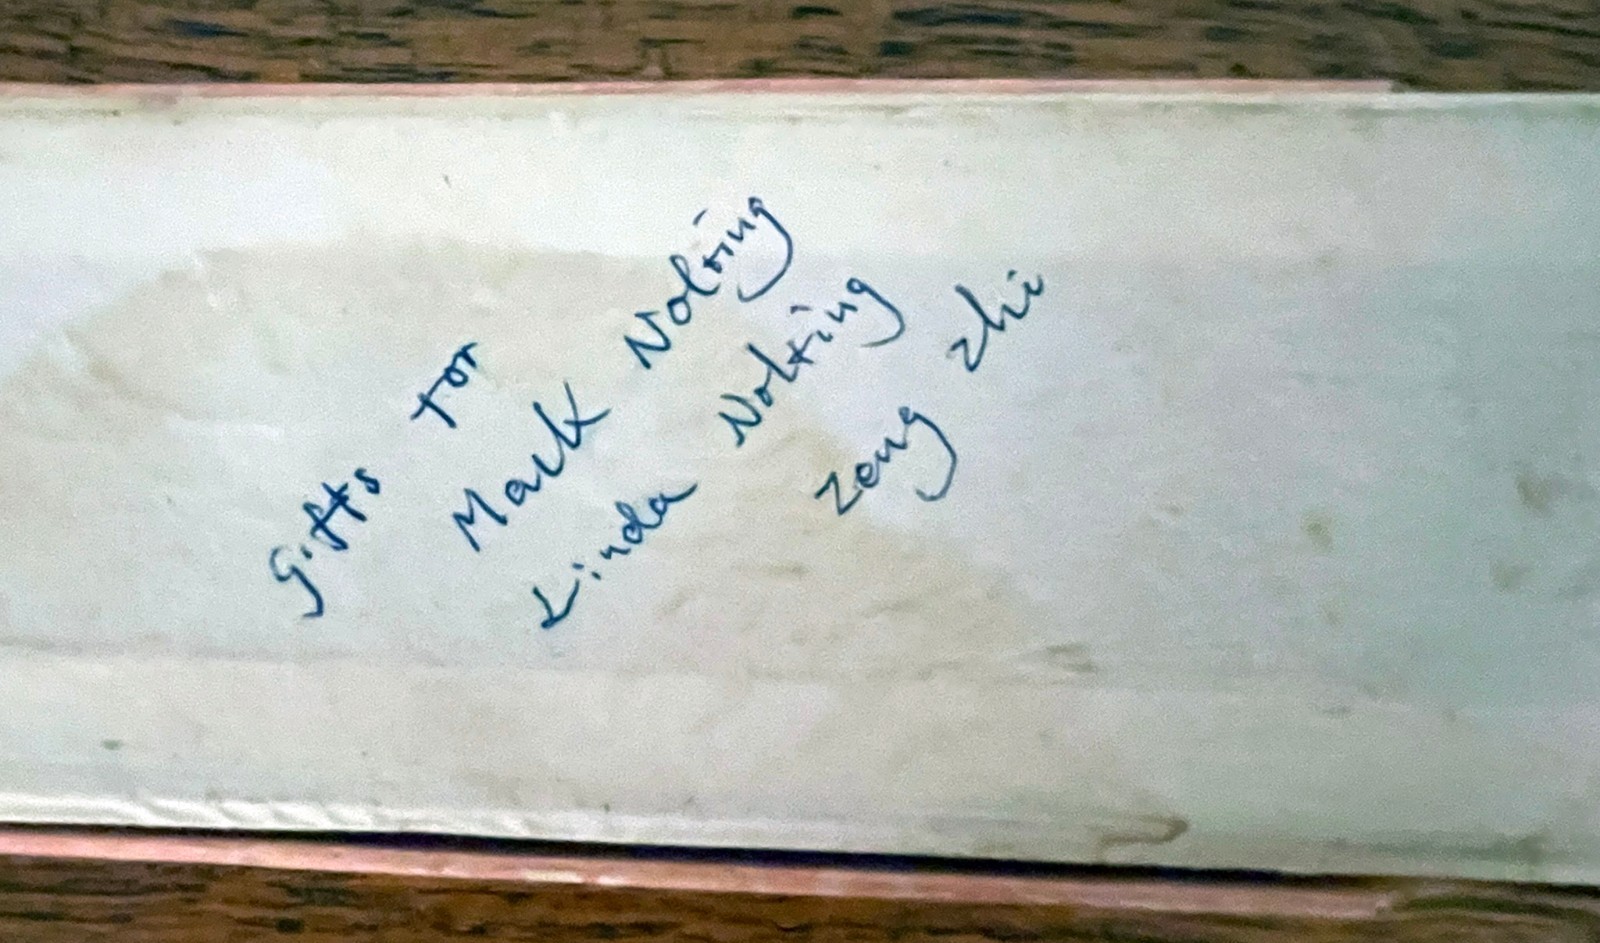 gifts For
Mark Nolting
Linda Nolting
Zeng Zhi